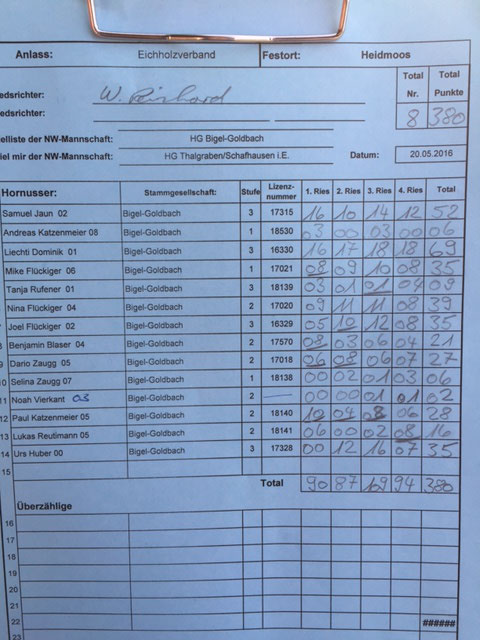 Anlass: Eichholzverband Festort: Heidmoos
edsrichter: W. Total Nr. Total Punkte
edsrichter: 8 380
elliste der NW-Mannschaft: HG Bigel-Goldbach
iel mir der NW-Mannschaft: HG Thalgraben/Schafhausen i.E. Datum: 20.05.2016
Hornusser: Stammgesellschaft: Stufe Lizenz-nummer 1. Ries 2. Ries 3. Ries 4. Ries Total
Samuel Jaun 02 Bigel-Goldbach 3 17315 16 10 14 12 52
Andreas Katzenmeier 08 Bigel-Goldbach 1 18530 03 00 03 00 06
Liechti Dominik 01 Bigel-Goldbach 3 16330 16 17 18 18 69
Mike Flückiger 06 Bigel-Goldbach 1 17021 08 09 10 08 35
Tanja Rufener 01 Bigel-Goldbach 3 18139 03 01 01 04 09
Nina Flückiger 04 Bigel-Goldbach 2 17020 09 11 11 08 39
Joel Flückiger 02 Bigel-Goldbach 3 16329 05 10 12 08 35
8 Benjamin Blaser 04 Bigel-Goldbach 2 17570 08 03 06 04 21
9 Dario Zaugg 05 Bigel-Goldbach 2 17018 06 08 06 07 27
10 Selina Zaugg 07 Bigel-Goldbach 1 18138 00 02 01 03 06
11 Noah Vierkant 03 Bigel-Goldbach 2 00 00 01 01 02
12 Paul Katzenmeier 05 Bigel-Goldbach 2 18140 10 04 08 06 28
13 Lukas Reutimann 05 Bigel-Goldbach 2 18141 06 00 02 08 16
14 Urs Huber 00 Bigel-Goldbach 3 17328 00 12 16 07 35
15
Total 90 87 109 94 380
Überzählige
16
17
18
19
20
21
22 ######
23